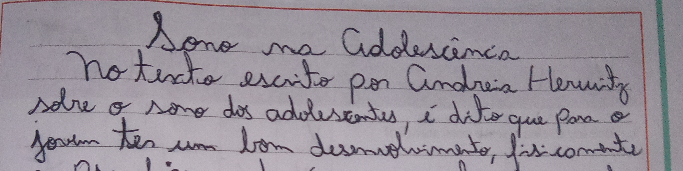 Sono na Adolescência
No texto escrito por Andreia Herwitz
sobre o sono dos adolescentes, é dito que para o
jovem ter um bom desenvolvimento, fisicamente